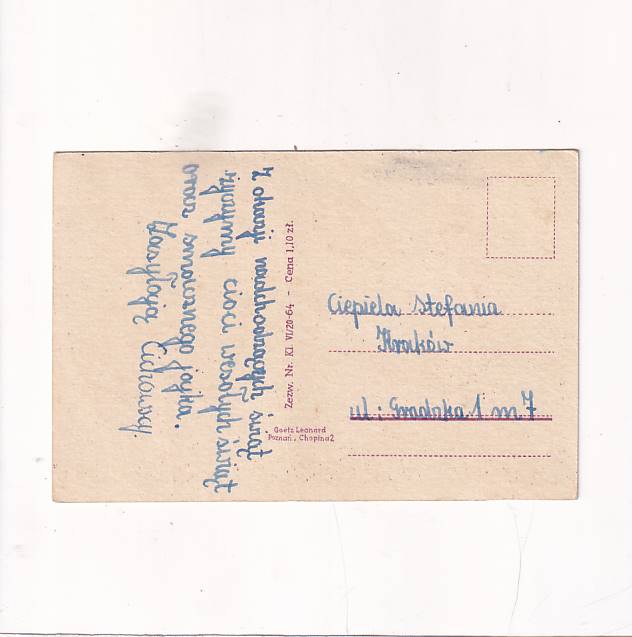 Z okazji nadchodzących świąt
życzymy cioci wesołych świąt
oraz smacznego jajka.
Zasyłają
Zezw. Nr. KI. VI/20-64 - Cena 1,10 zł.
Goetz Leonard
Poznań, Chopina 2
Ciepiela Stefania
Kraków
ul: Grodzka 1 m 7